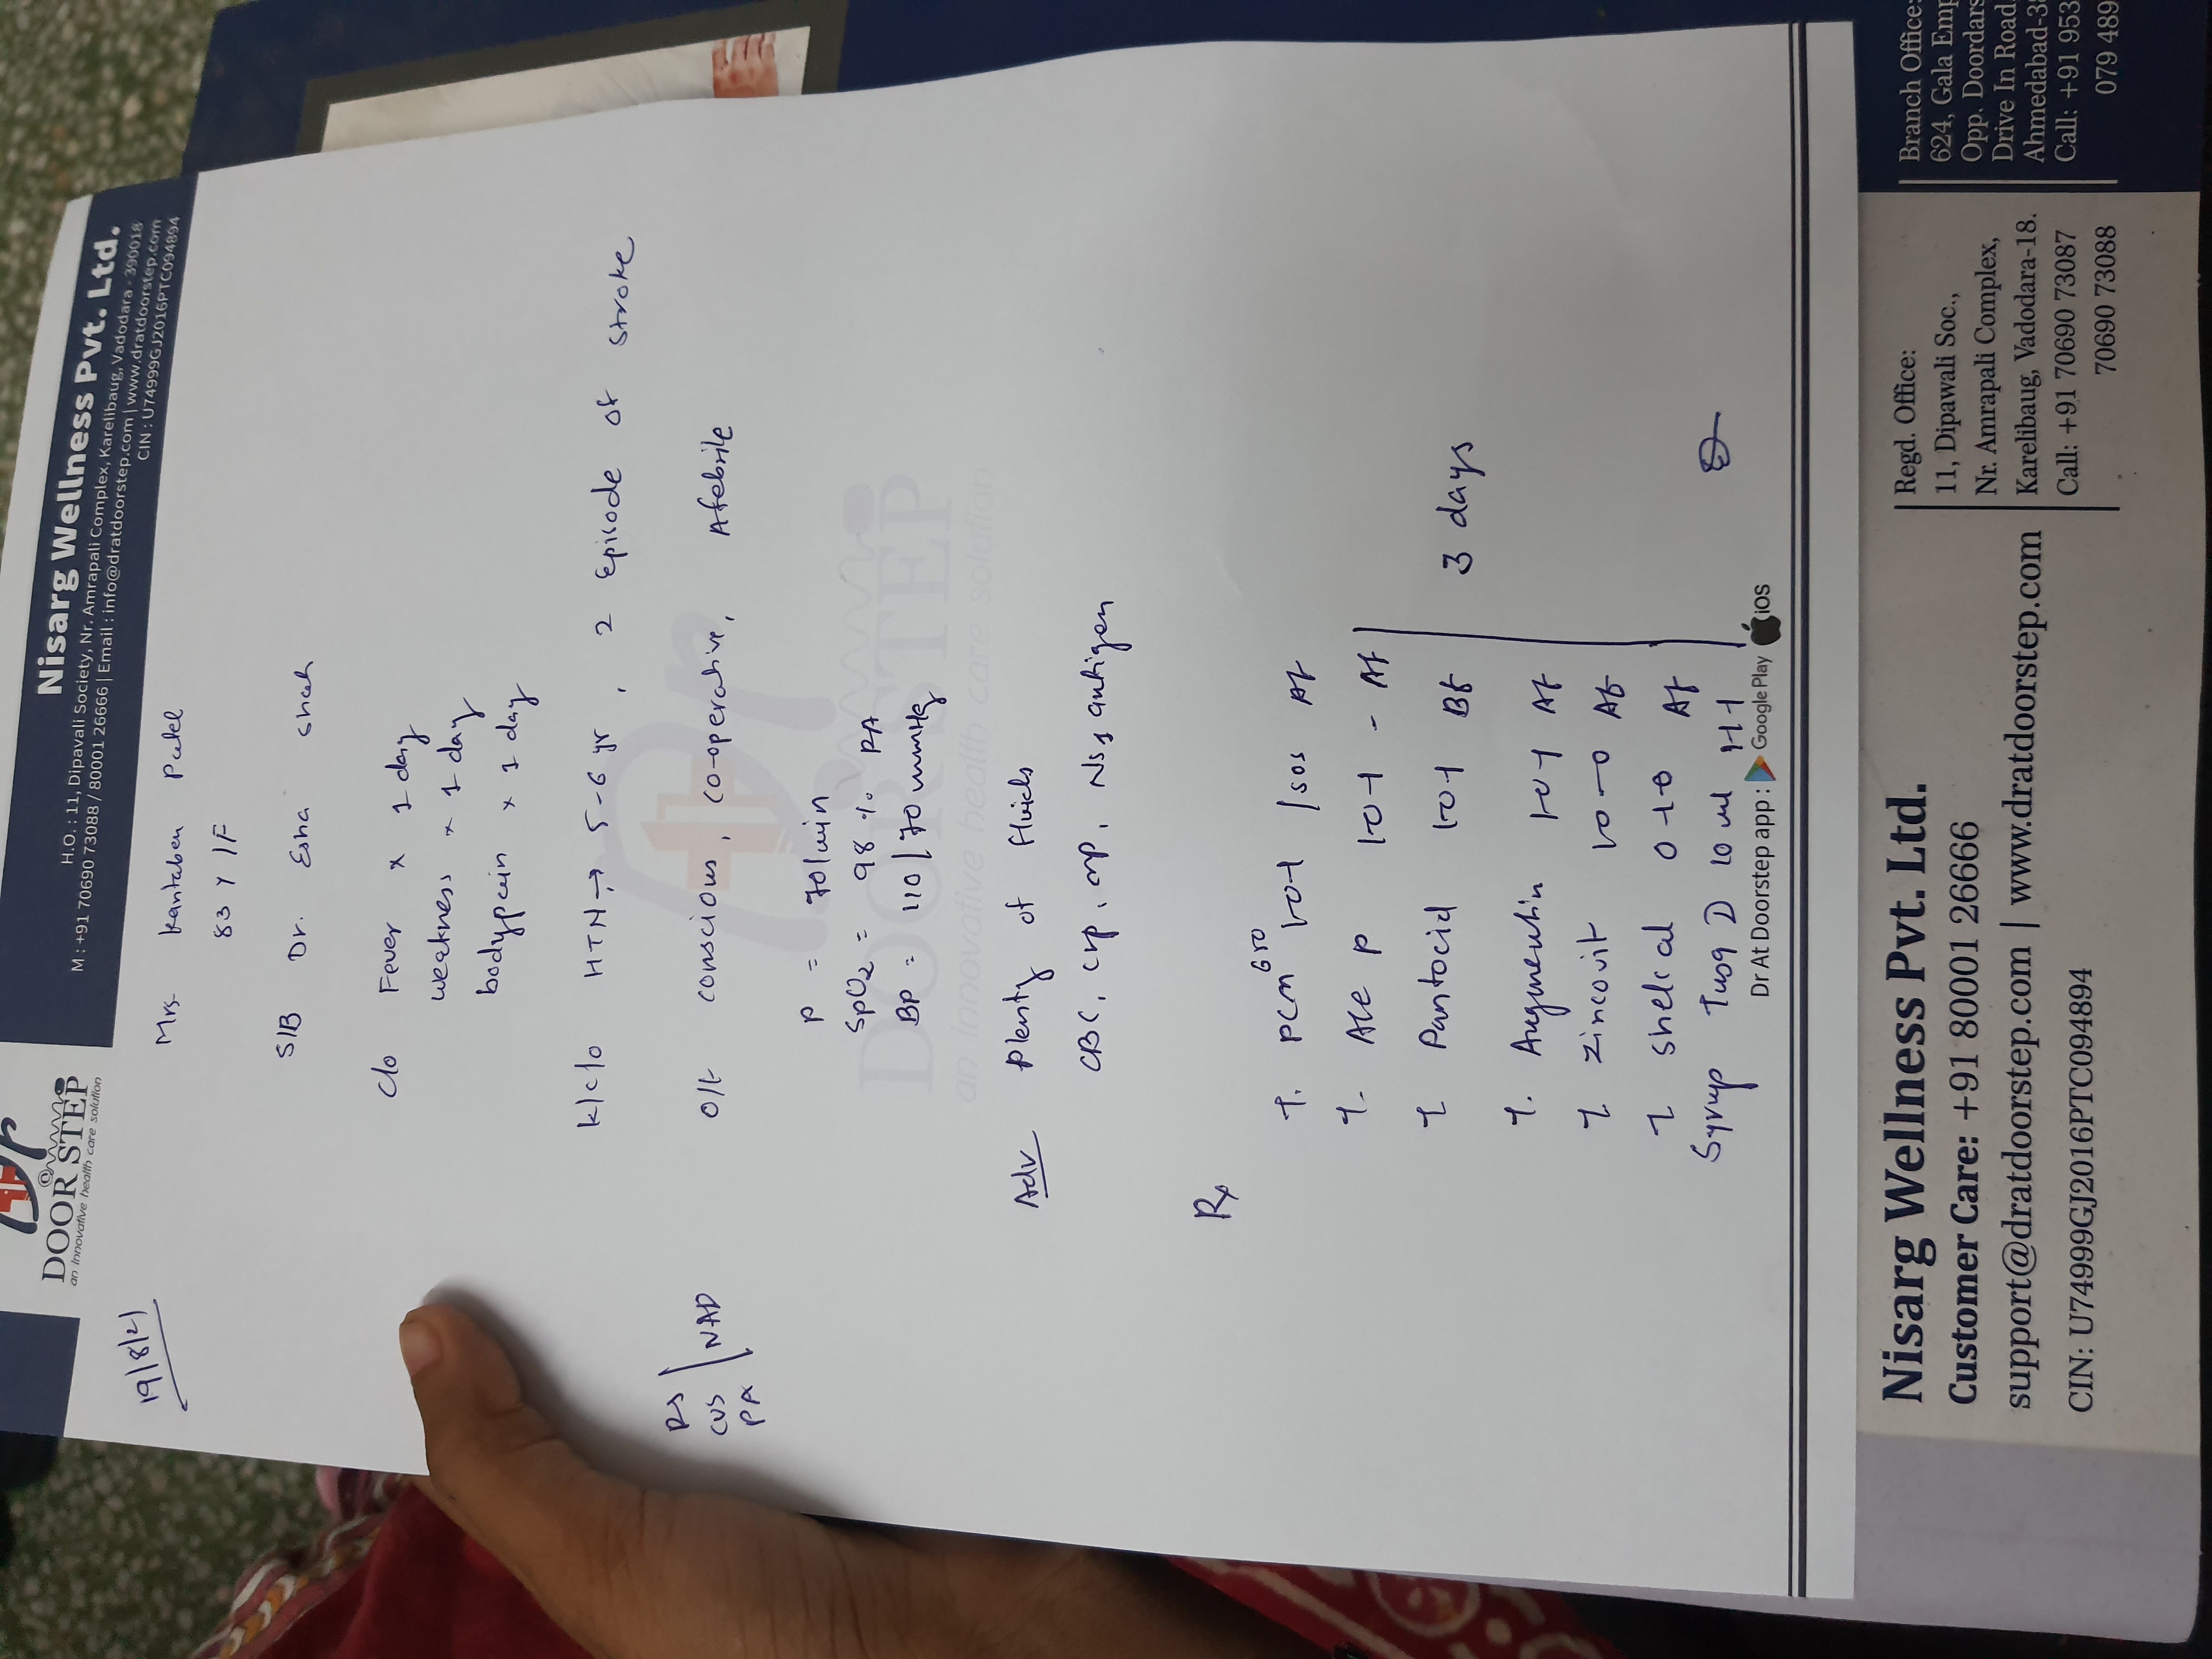 Dr
DOOR STEP
an innovative health care solution
Nisarg Wellness Pvt. Ltd.
H.O. : 11, Dipavali Society, Nr. Amrapali Complex, Karelibaug, Vadodara - 390018
M : +91 70690 73088 / 80001 26666 | Email : info@dratdoorstep.com | www.dratdoorstep.com
CIN : U74999GJ2016PTC094894
19/8/21
Mrs Kantaben Patel
83 Y / F
S/B Dr. Esha Shah
C/o Fever x 1 day
weakness x 1 day
bodypain x 1 day
k/c/o HTN → 5-6 yr, 2 Episode of stroke
RS
CVS NAD
PA
O/E conscious, co-operative, Afebrile
P = 70/min
SpO2 = 98 % RA
BP = 110/70 mmHg
Dr
DOOR STEP
an innovative health care solution
Adv Plenty of fluids
CBC, crp, mp, Ns1 antigen
Rx
T. PCM 650 1-0-1 /sos Af
T. Ace p 1-0-1 - Af
T Pantocid 1-0-1 Bf
3 days
T. Augmentin 1-0-1 Af
T Zincovit 1-0-0 Af
T Shelcal 0-1-0 Af
Syrup Tusq D 10 ml 1-1-1
Dr At Doorstep app : Google Play iOS
Nisarg Wellness Pvt. Ltd.
Customer Care: +91 80001 26666
support@dratdoorstep.com | www.dratdoorstep.com
CIN: U74999GJ2016PTC094894
Regd. Office:
11, Dipawali Soc.,
Nr. Amrapali Complex,
Karelibaug, Vadodara-18.
Call: +91 70690 73087
70690 73088
Branch Office:
624, Gala Emp
Opp. Doordars
Drive In Road
Ahmedabad-3
Call: +91 953
079 489